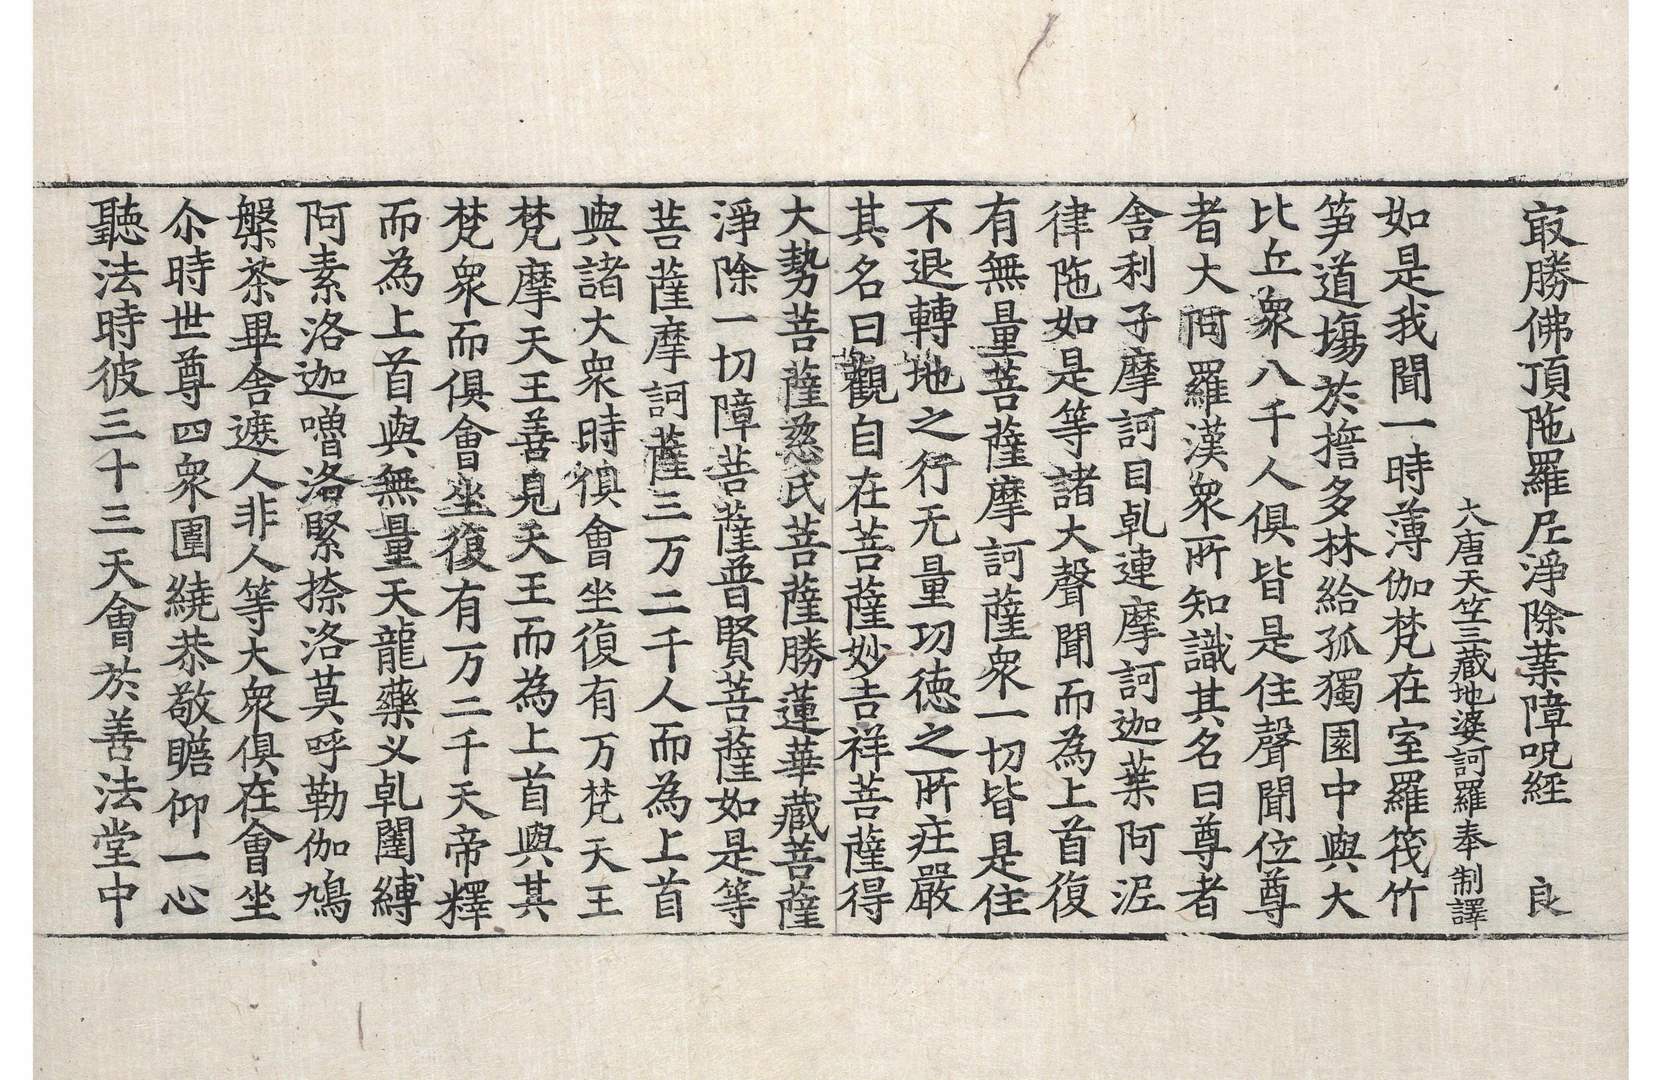 㝡勝佛頂陁羅尼淨除業障呪經 良
大唐天竺三藏地婆訶羅奉 制譯
如是我聞一時薄伽梵在室羅筏竹
笋道場於擔多林給孤獨園中與大
比丘衆八千人俱皆是住聲聞位尊
者大阿羅漢衆所知識其名曰尊者
舎利子摩訶目乹連摩訶迦葉阿泥
律陁如是等諸大聲聞而為上首復
有無量菩薩摩訶薩衆一切皆是住
不退轉地之行无量功徳之所庄嚴
其名曰觀自在菩薩妙吉祥菩薩得
大勢菩薩慈氏菩薩勝蓮華藏菩薩
淨除一切障菩薩普賢菩薩如是等
菩薩摩訶薩三万二千人而為上首
與諸大衆時俱會坐復有万梵天王
梵摩天王善見天王而為上首與其
梵衆而俱會坐復有一万二千天帝釋
而為上首與無量天龍藥叉乹闥縛
阿素洛迦嚕洛緊捺洛莫呼勒伽鳩
槃茶畢舎遮人非人等大衆俱在會坐
尒時世尊四衆圍繞恭敬瞻仰一心
聽法時彼三十三天會於善法堂中